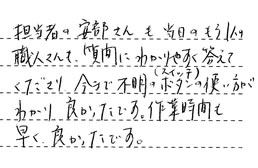 担当者の安部さんも当日のもう1人の
職人さんも、質問にわかりやすく答えて
くださり 今まで不明のボタン(スイッチ)の使い方が
わかり 良かったです。作業時間も
早く、良かったです。